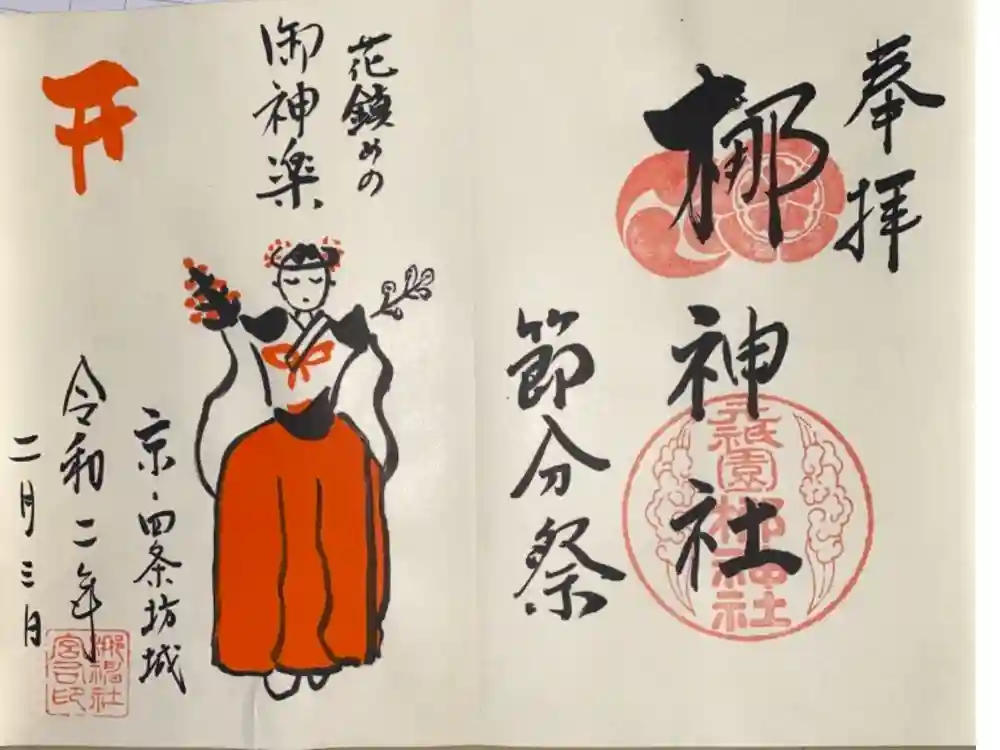 奉拝
梛神社
元祇園梛神社
節分祭
花鎮めの
御神楽
京・四条坊城
令和二年
二月三日
梛神社
宮司印